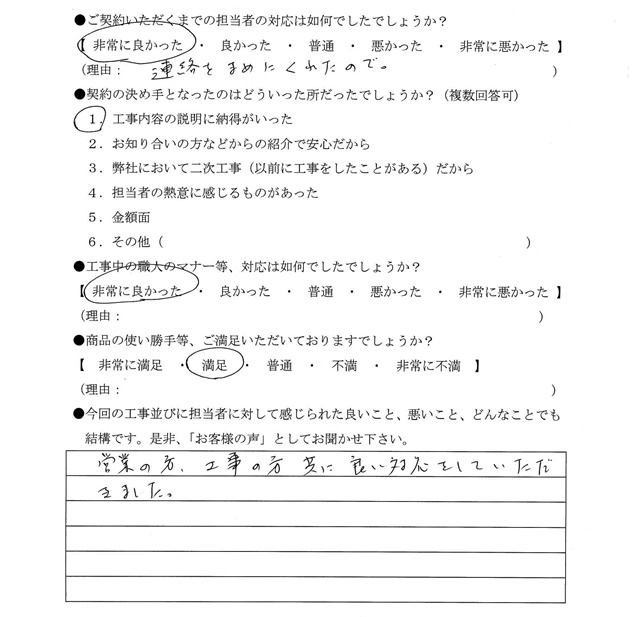 ●ご契約いただくまでの担当者の対応は如何でしたでしょうか？
【 非常に良かった ・ 良かった ・ 普通 ・ 悪かった ・ 非常に悪かった 】
（理由： 連絡をまめにくれたので。 ）
●契約の決め手となったのはどういった所だったでしょうか？（複数回答可）
１．工事内容の説明に納得がいった
２．お知り合いの方などからの紹介で安心だから
３．弊社において二次工事（以前に工事をしたことがある）だから
４．担当者の熱意に感じるものがあった
５．金額面
６．その他（ ）
●工事中の職人のマナー等、対応は如何でしたでしょうか？
【 非常に良かった ・ 良かった ・ 普通 ・ 悪かった ・ 非常に悪かった 】
（理由： ）
●商品の使い勝手等、ご満足いただいておりますでしょうか？
【 非常に満足 ・ 満足 ・ 普通 ・ 不満 ・ 非常に不満 】
（理由： ）
●今回の工事並びに担当者に対して感じられた良いこと、悪いこと、どんなことでも
結構です。是非、「お客様の声」としてお聞かせ下さい。
営業の方、工事の方共に良い対応をしていただ
きました。